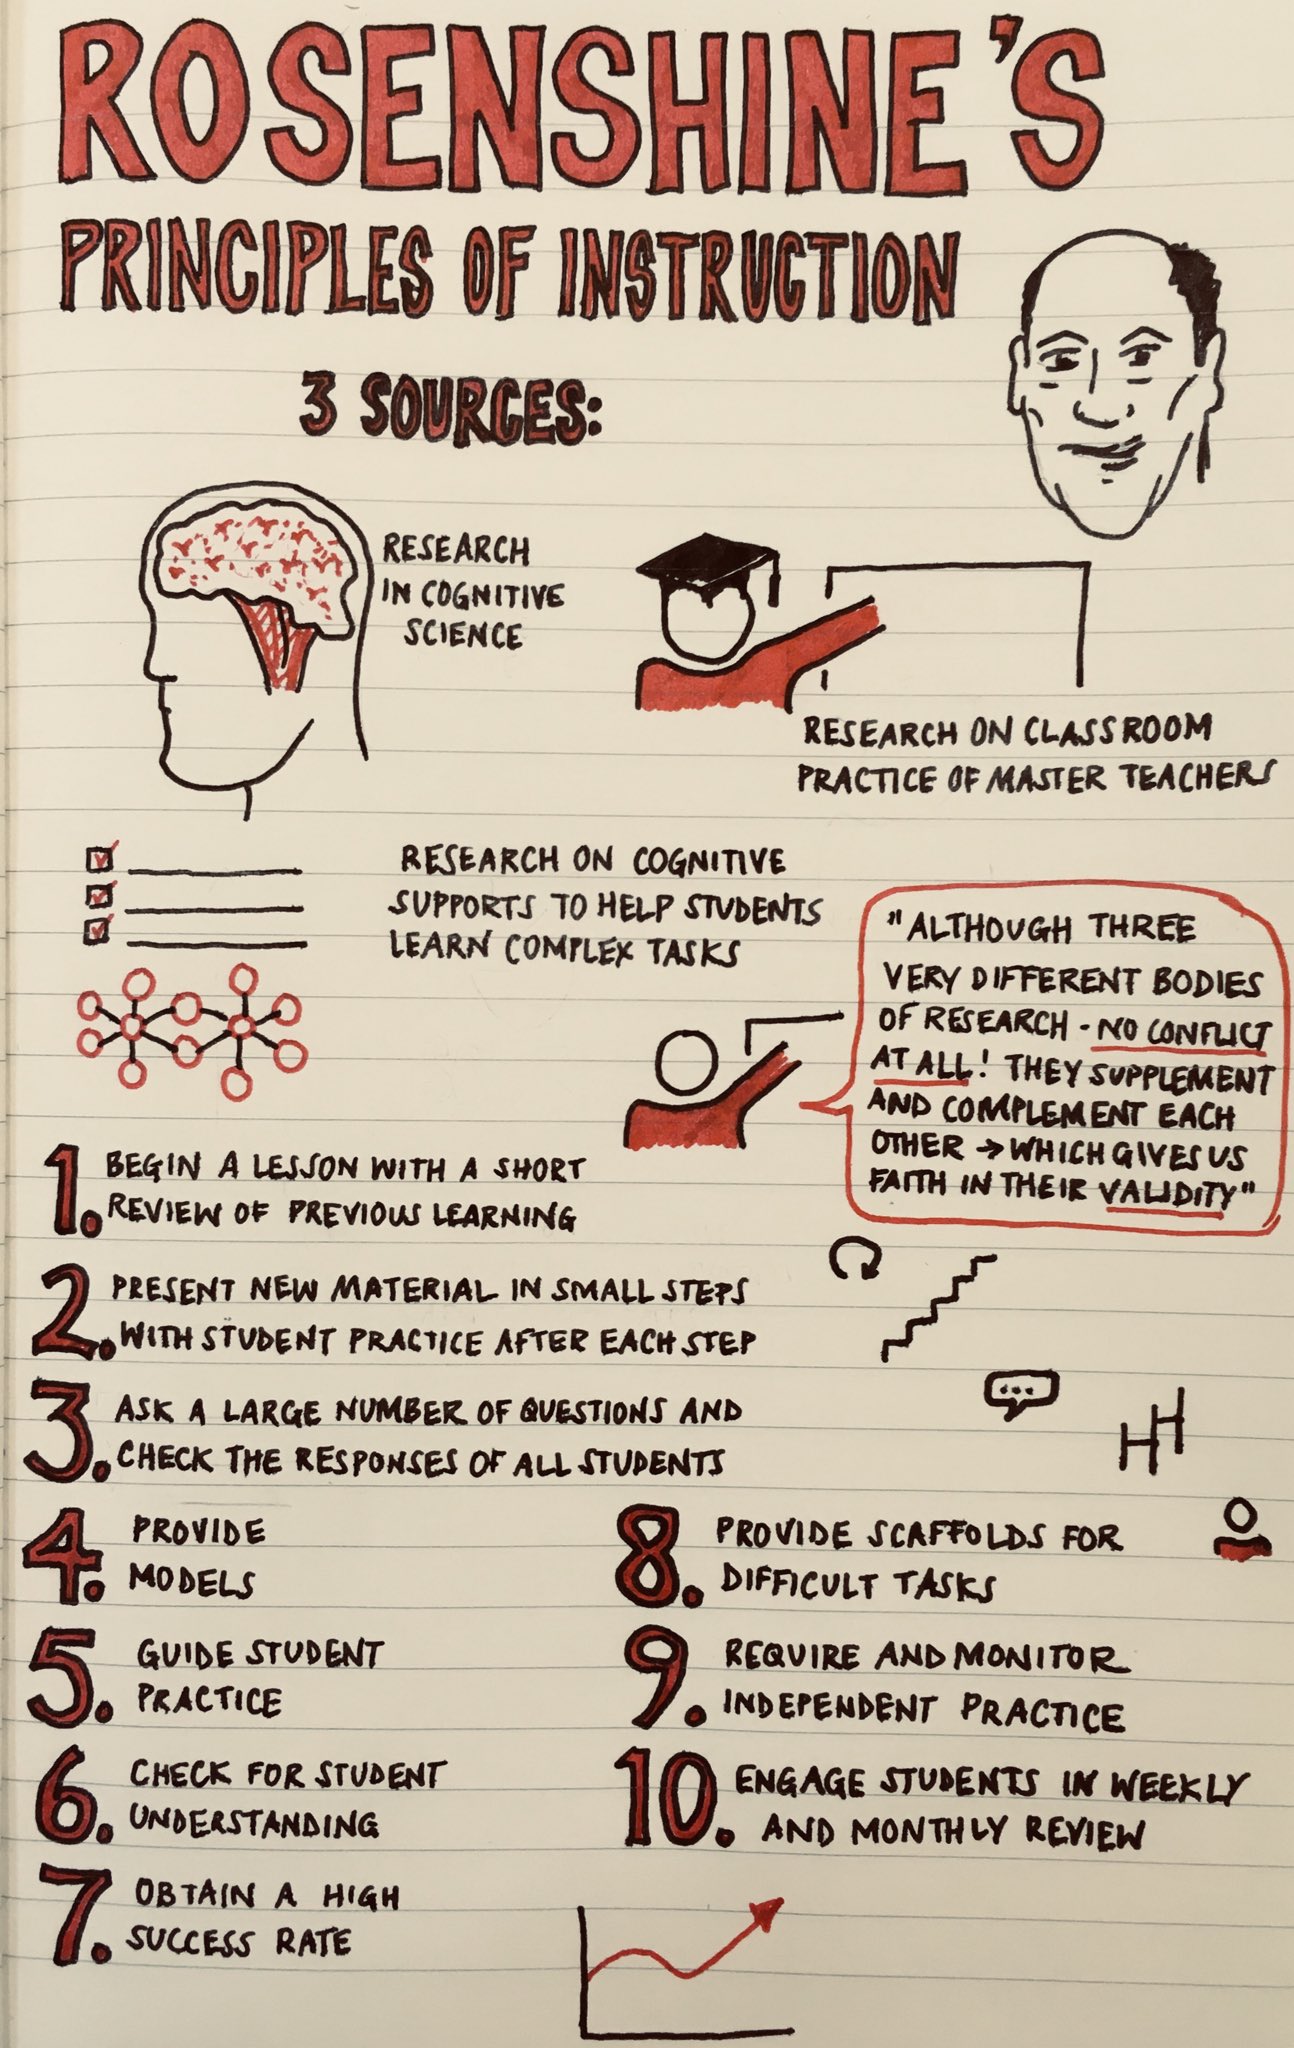 ROSENSHINE'S
PRINCIPLES OF INSTRUCTION
3 SOURCES:
RESEARCH
IN COGNITIVE
SCIENCE
RESEARCH ON CLASSROOM
PRACTICE OF MASTER TEACHERS
RESEARCH ON COGNITIVE
SUPPORTS TO HELP STUDENTS
LEARN COMPLEX TASKS
"ALTHOUGH THREE
VERY DIFFERENT BODIES
OF RESEARCH - NO CONFLICT
AT ALL! THEY SUPPLEMENT
AND COMPLEMENT EACH
OTHER → WHICH GIVES US
FAITH IN THEIR VALIDITY"
1. BEGIN A LESSON WITH A SHORT
REVIEW OF PREVIOUS LEARNING
2. PRESENT NEW MATERIAL IN SMALL STEPS
WITH STUDENT PRACTICE AFTER EACH STEP
3. ASK A LARGE NUMBER OF QUESTIONS AND
CHECK THE RESPONSES OF ALL STUDENTS
4. PROVIDE
MODELS
5. GUIDE STUDENT
PRACTICE
6. CHECK FOR STUDENT
UNDERSTANDING
7. OBTAIN A HIGH
SUCCESS RATE
8. PROVIDE SCAFFOLDS FOR
DIFFICULT TASKS
9. REQUIRE AND MONITOR
INDEPENDENT PRACTICE
10. ENGAGE STUDENTS IN WEEKLY
AND MONTHLY REVIEW